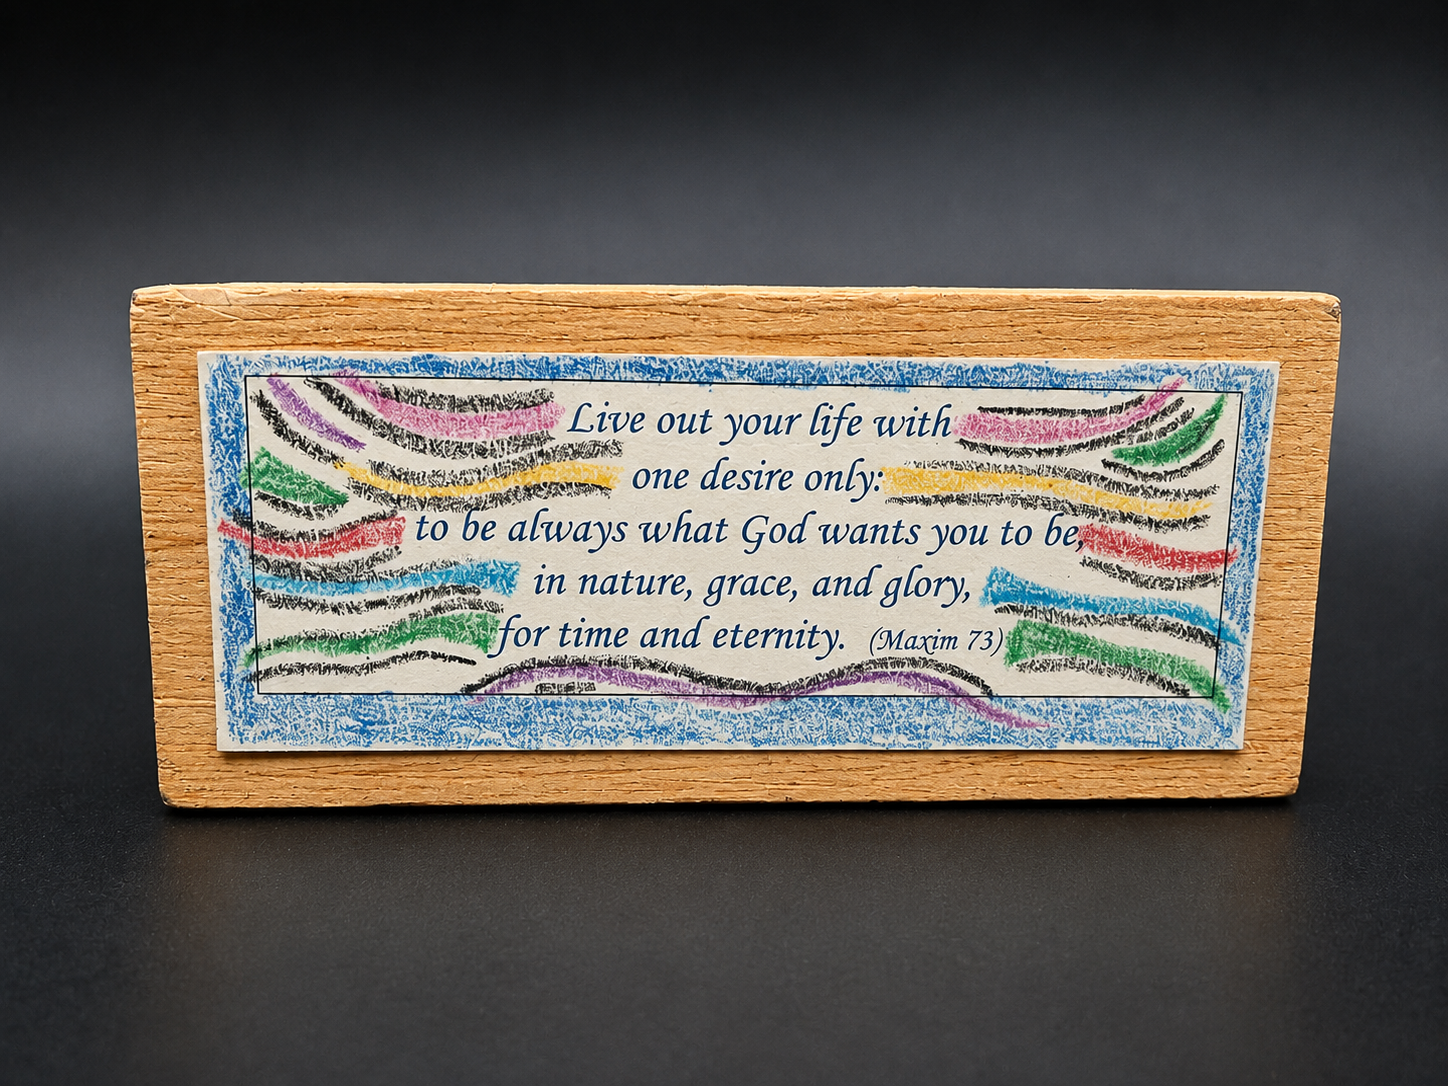 Live out your life with
one desire only:
to be always what God wants you to be,
in nature, grace, and glory,
for time and eternity. (Maxim 73)